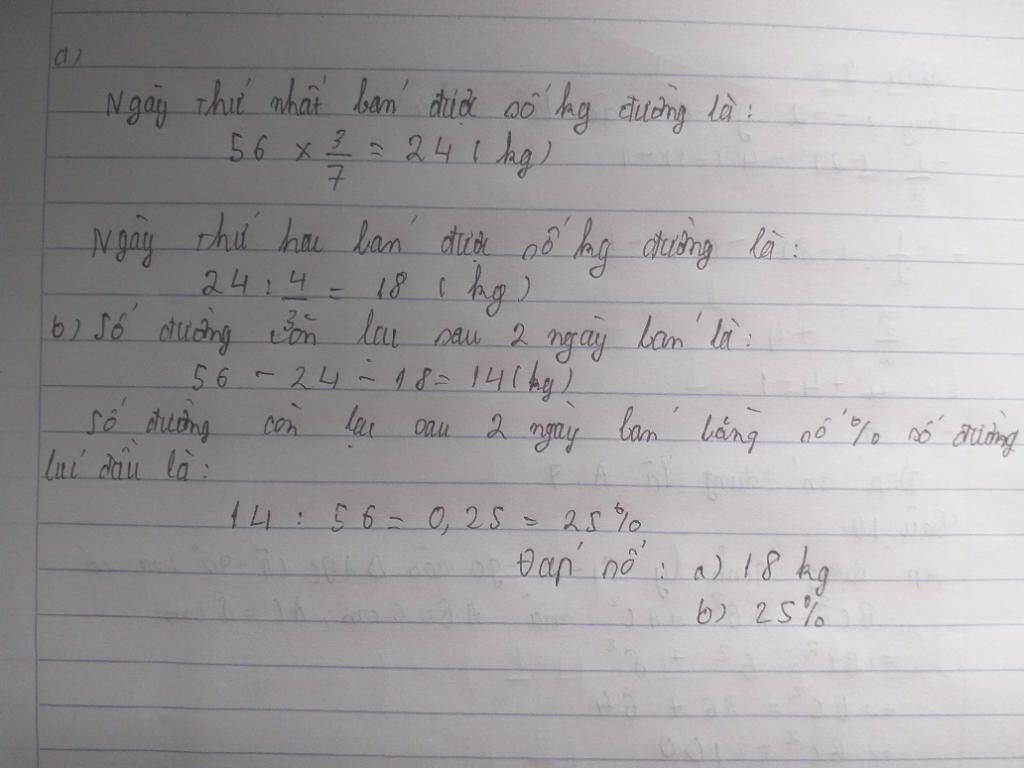 a)
Ngày thứ nhất bán được số kg đường là:
56 × 3/7 = 24 (kg)
Ngày thứ hai bán được số kg đường là:
24 : 4/3 = 18 (kg)
b) Số đường còn lại sau 2 ngày bán là:
56 - 24 - 18 = 14 (kg)
Số đường còn lại sau 2 ngày bán bằng số % số đường
lúc đầu là:
14 : 56 = 0,25 = 25%
Đáp số : a) 18 kg
b) 25%